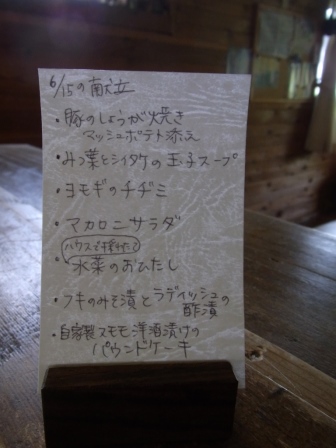 6/15の献立
・豚のしょうが焼き
マッシュポテト添え
・みつ葉とシイタケの玉子スープ
・ヨモギのチヂミ
・マカロニサラダ
ハウスで採れたて
・水菜のおひたし
・フキのみそ漬とラディッシュの
酢漬
・自家製スモモ洋酒漬けの
パウンドケーキ